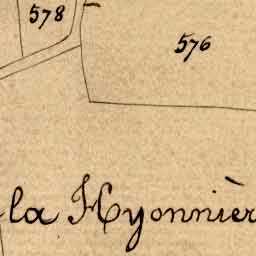 578
576
la Hyonnièr